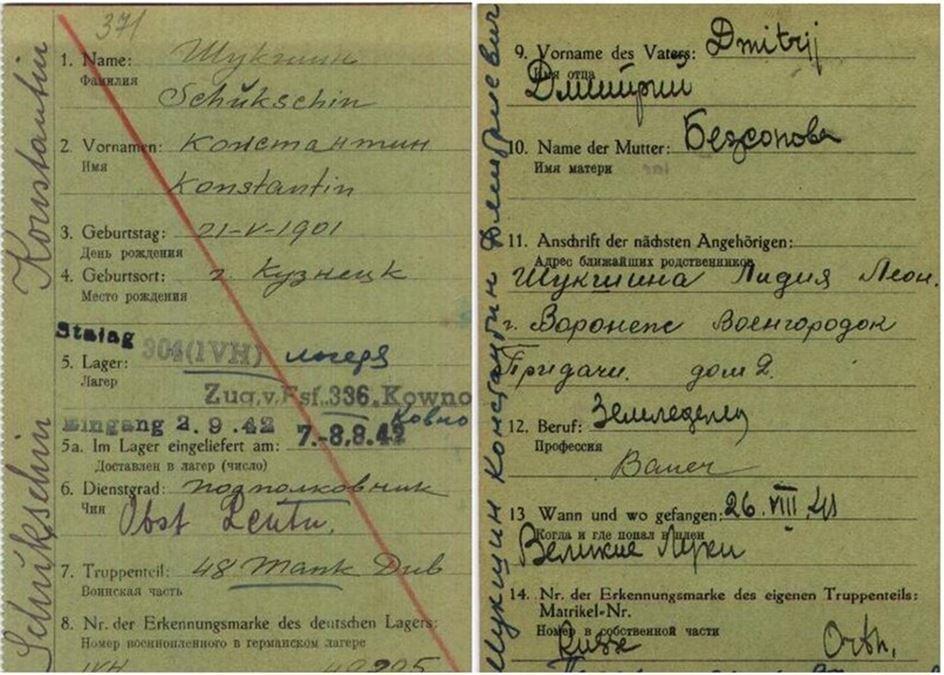 371
Schükschin Konstantin
1. Name: Шукшин
Фамилия
Schükschin
2. Vornamen: Константин
Имя
Konstantin
3. Geburtstag: 21-V-1901
День рождения
4. Geburtsort: г. Кузнецк
Место рождения
Stalag 304(IVH) лагеря
5. Lager:
Лагерь
Zug.v. Fsf. 336. Kowno
Ковно
Eingang 2.9.42 7.-8,8.42
5a. Im Lager eingeliefert am:
Доставлен в лагерь (число)
6. Dienstgrad: подполковник
Чин
Obst Leutn.
7. Truppenteil: 48 Танк Див
Воинская часть
8. Nr. der Erkennungsmarke des deutschen Lagers:
Номер военнопленного в германском лагере
IVH
Шукшин Константин Дмитриевич
9. Vorname des Vaters: Dmitrij
Имя отца
Дмитрий
10. Name der Mutter: Безсонова
Имя матери
11. Anschrift der nächsten Angehörigen:
Адрес ближайших родственников
Шукшина Лидия Леон.
г. Воронеж Военгородок
Придачи. дом 2.
12. Beruf: Земледелец
Профессия
Bauer
13 Wann und wo gefangen: 26.VIII.41
Когда и где попал в плен
Великие Луки
14. Nr. der Erkennungsmarke des eigenen Truppenteils:
Matrikel-Nr.
Номер в собственной части
Russe Orth.